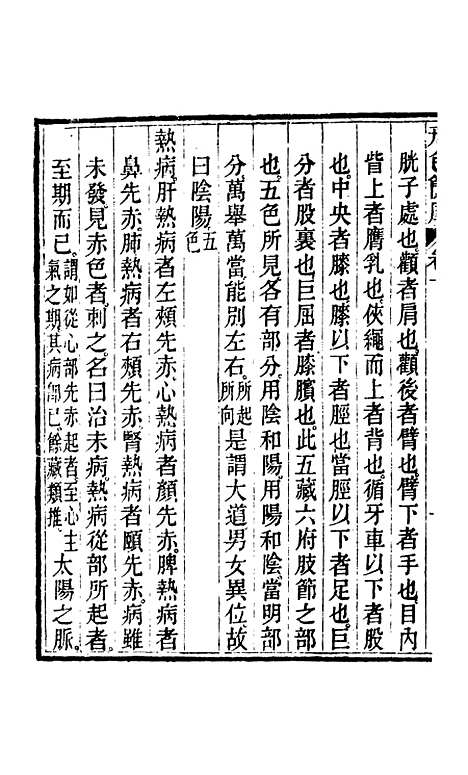 胱子處也。顴者肩也。顴後者臂也。臂下者手也。目內
眥上者膺乳也。俠繩而上者背也。循牙車以下者股
也。中央者膝也。膝以下者脛也。當脛以下者足也。巨
分者股裏也。巨屈者膝臏也。此五藏六府肢節之部
也。五色所見。各有部分。用陰和陽。用陽和陰。當明部
分。萬舉萬當。能別左右。所起所向是謂大道。男女異位。故
曰陰陽五色
熱病。肝熱病者左頰先赤。心熱病者顏先赤。脾熱病者
鼻先赤。肺熱病者右頰先赤。腎熱病者頤先赤。病雖
未發。見赤色者刺之。名曰治未病。熱病從部所起者。
至期而已。謂如從心部先赤起者。至心主氣之期。其病即已。餘藏類推。太陽之脈。